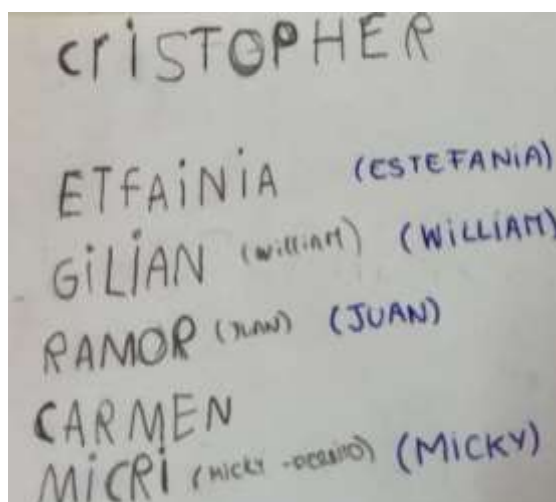 CRISTOPHER
ETFAINIA (ESTEFANIA)
GILIAN (William) (WILLIAM)
RAMOR (JUAN) (JUAN)
CARMEN
MICRI (MICKY - PERRITO) (MICKY)